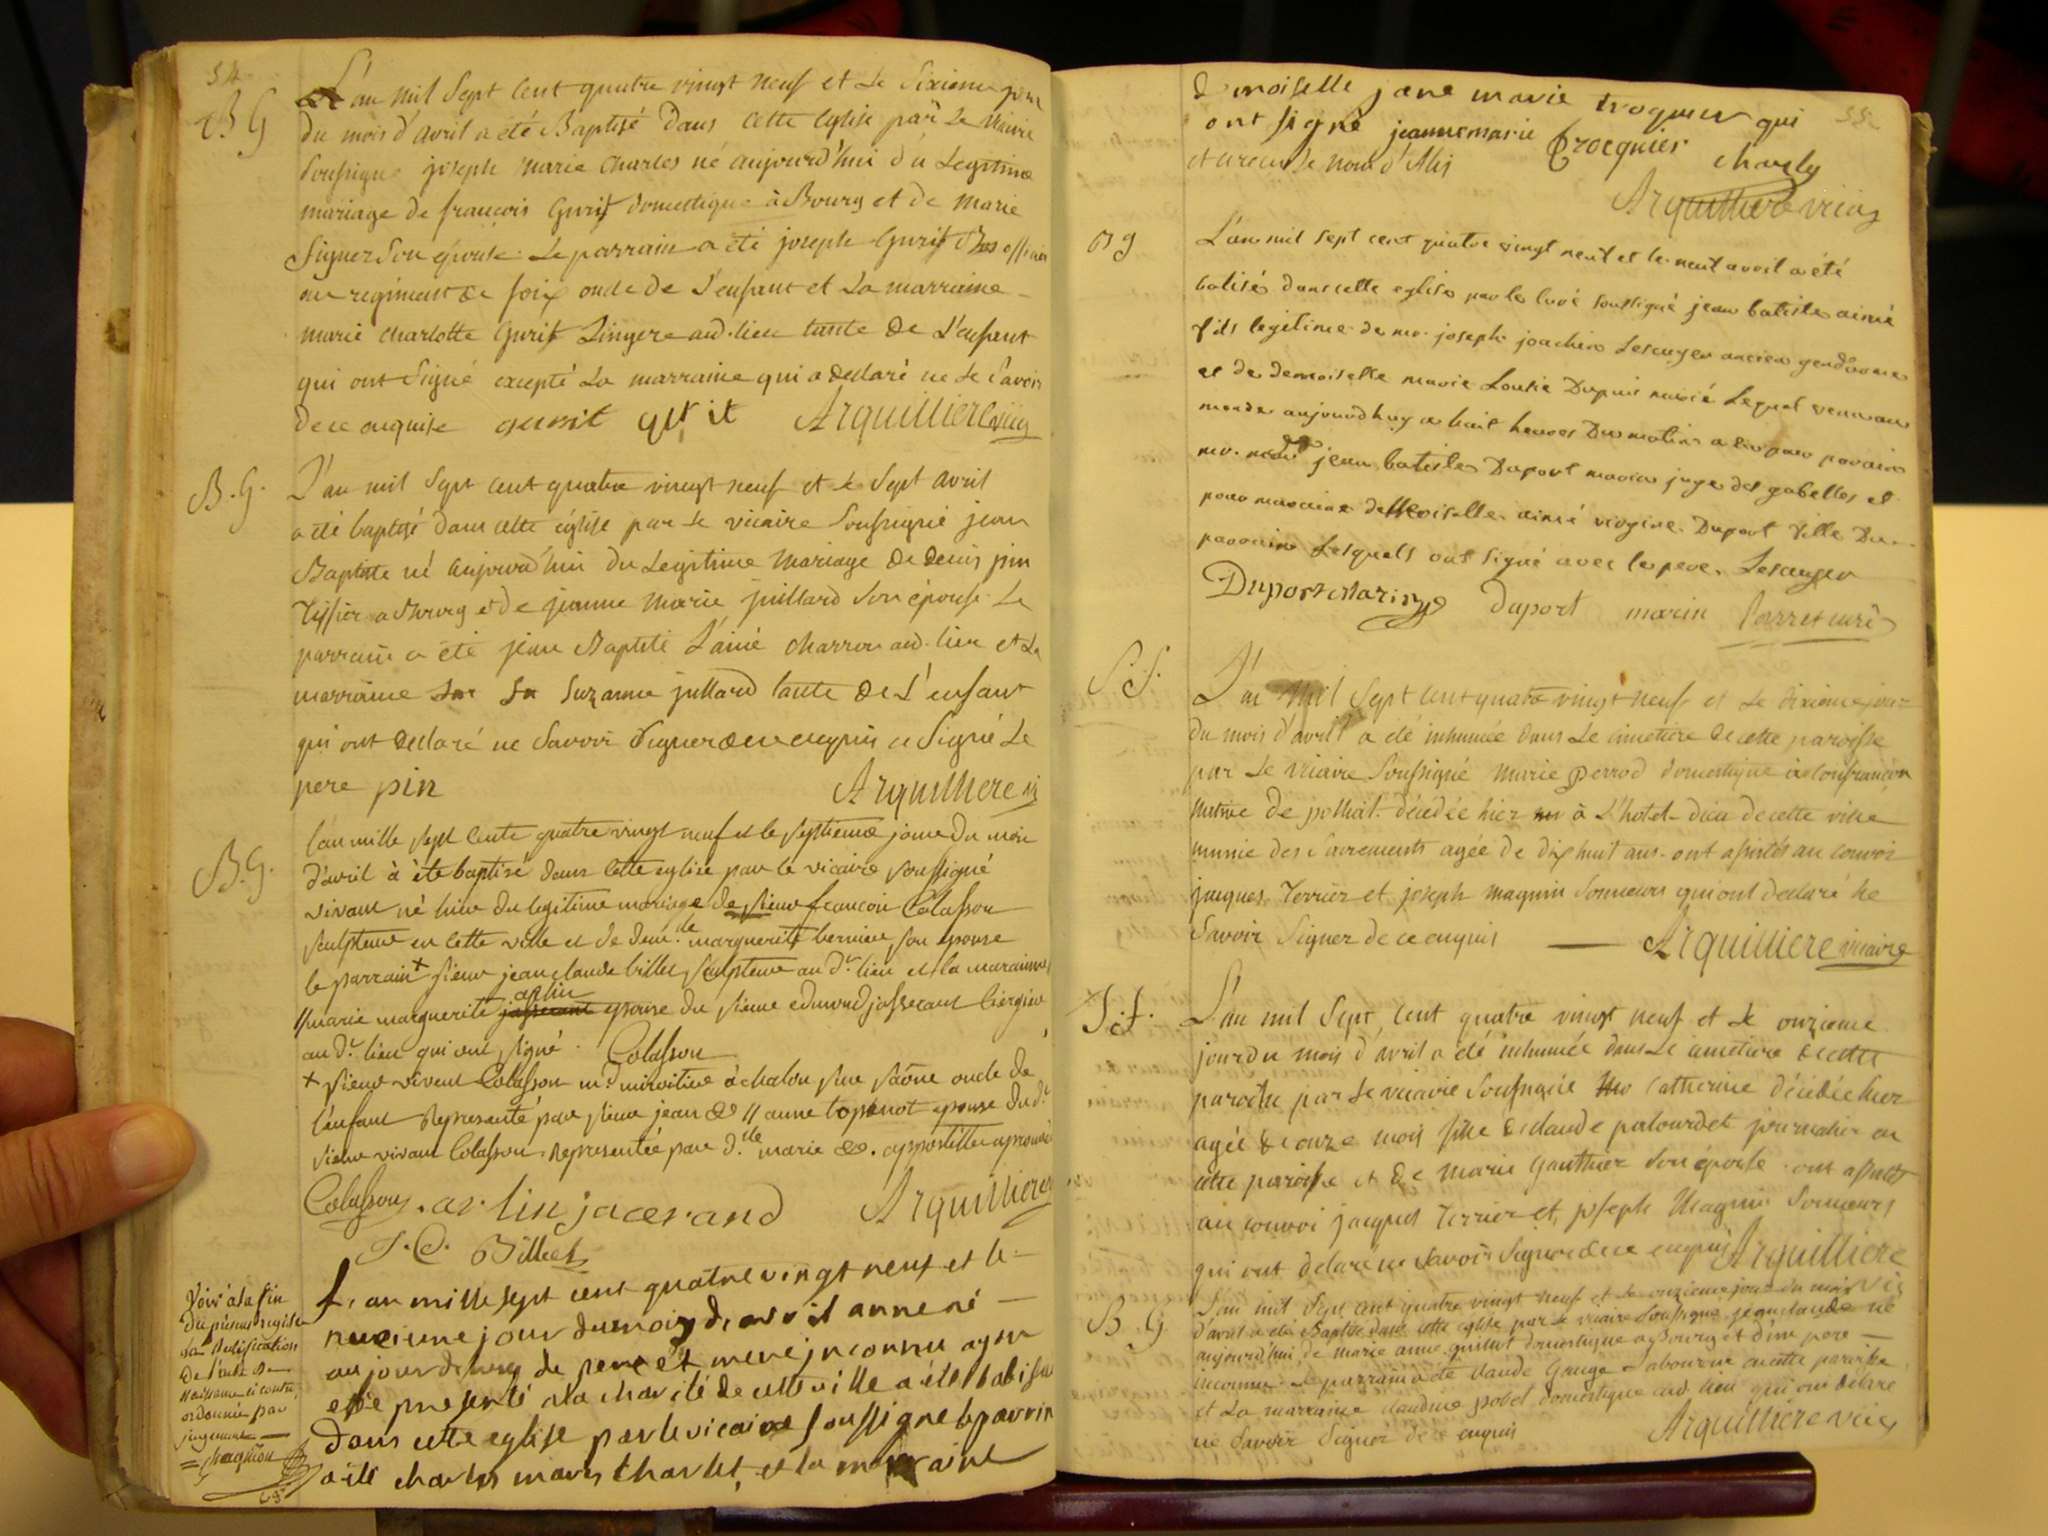 54
B G
L'an mil sept cent quatre vingt neuf et le sixieme jour
du mois d'avril a été Baptisé Dans cette eglise par le vicaire
soussigné joseph marie charles né aujourd'hui du Legitime
mariage de françois Gurit domestique à Bourg et de marie
signer son épouse. Le parrain a été joseph Gurit Bas officier
au regiment de foix oncle de L'enfant et La marraine
marie charlotte Gurit Lingere aud. lieu tante de L'enfant
qui ont signé excepté La marraine qui a declaré ne le savoir
de ce enquise Arquilliere vic
B. G.
L'an mil sept cent quatre vingt neuf et le sept avril
a été baptisé dans cette église par le vicaire soussigné jean
Baptiste né aujourd'hui du Legitime mariage de denis pin
Tissier a Bourg et de jeanne Marie juillard son épouse. Le
parrain a été jean Baptiste L'ainé charron aud. lieu et La
marraine suzanne juillard tante de L'enfant
qui ont declaré ne savoir signer de ce enquis a signé Le
pere pin Arquilliere vi
B. G.
l'an mille sept cents quatre vingt neuf et le septieme jour du mois
d'avril à été baptisé dans cette eglise par le vicaire soussigné
vivant né hier du legitime mariage de sieur francois Colasson
sculpteur en cette ville et de dem.lle marguerite bernier son epouse
le parrain + sieur jean claude billet sculpteur au d.t lieu et la maraine
// marie marguerite arlin epouse du sieur edmond jasserant cirgier
au d.t lieu qui ont signé. Colasson
+ sieur vivent Colasson m.d miroitier à chalon sur saône oncle de
l'enfant Representé par sieur jean &c // anne topenot epouse du d.t
sieur vivant Colasson, representée par d.lle marie &c. appostilles aprouvé
Colasson. arlin jacerand Arquilliere
J. C. Billet
L'an mille sept cent quatre vingt neuf et le
neuvieme jour du mois d'avril anne né
au jourdhuy de pere et mere inconnu ayen
etté presenté a la charité de cette ville a été babtisée
dans cette eglise par le vicaire soussigné le parrin
a été charles maris charlet, et la marraine
Voir à la fin
du présent registre
la rectification
de l'acte de
naissance ci contre
ordonnée par
jugement
55
demoiselle jane marie troquier qui
ont signé jeanne marie Trocquier
et a recu le nom d'Alis charles
Arquilliere vicaire
B g
L'an mil sept cent quatre vingt neuf et le neuf avril a été
batisé dans cette eglise par le curé soussigné jean batiste aimé
fils legitime de mr. joseph joachim Lescuyer ancien gendarme
et de demoiselle marie Louise Dupuis marié Lequel venu au
monde aujourdhuy a huit heures Du matin a eu pour parain
mr. jean batiste Duport marin juge des gabelles et
pour maraine demoiselle aimé virgine Duport fille Du
parain Lesquels ont signé avec le pere. Lescuyer
Duport Marin Duport marin curé
S S.
L'an Mil sept cent quatre vingt neuf et le dixieme jour
du mois d'avril a été inhumée dans le cimetiere de cette paroisse
par le vicaire soussigné marie perrod domestique à Confrancon
native de polliat. décédée hier à L'hotel-dieu de cette ville
munie des sacrements agée de dix huit ans. ont assistés au convoi
jacques Terrier et joseph magnin sonneurs qui ont declaré ne
savoir signer de ce enquis Arquilliere vicaire
L'an mil sept cent quatre vingt neuf et le onzieme
jour du mois d'avril a été inhumée dans le cimetiere de cette
paroisse par le vicaire soussigné catherine décédée hier
agée de onze mois fille de claude palourdet journalier en
cette paroisse et de marie Gauthier son épouse. ont assistés
au convoi jacques Terrier et joseph Magnin sonneurs
qui ont declaré ne savoir signer de ce enquis Arquilliere
vic
B G
L'an mil sept cent quatre vingt neuf et le onzieme jour du mois
d'avril a été Baptisé dans cette eglise par le vicaire soussigné jean claude né
aujourd'hui de marie anne guillot domestique a Bourg et d'un pere
inconnu. Le parrain a été claude Gruge Laboureur en cette paroisse
et La marraine claudine pobel domestique aud. lieu qui ont déclaré
ne savoir signer de ce enquis Arquilliere vic